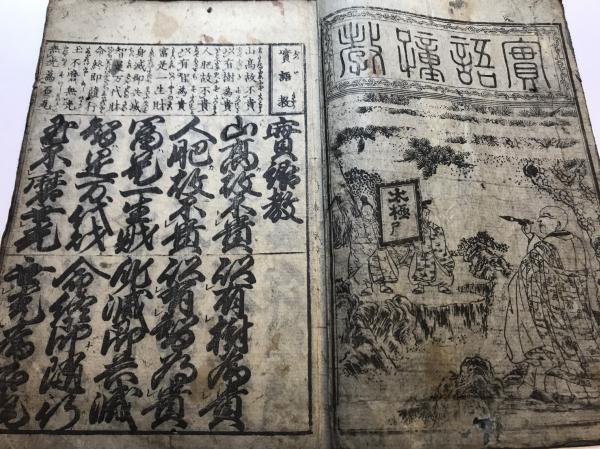 實語教
太極
實語教
山高故不貴
以有樹為貴
人肥故不貴
以有智為貴
富是一生財
身滅即共滅
智是万代財
命終即隨行
玉不磨無光
無光為石瓦
實語教
山高故不貴 以有樹為貴
人肥故不貴 以有智為貴
富是一生財 身滅即共滅
智是万代財 命終即隨行
玉不磨無光 無光為石瓦